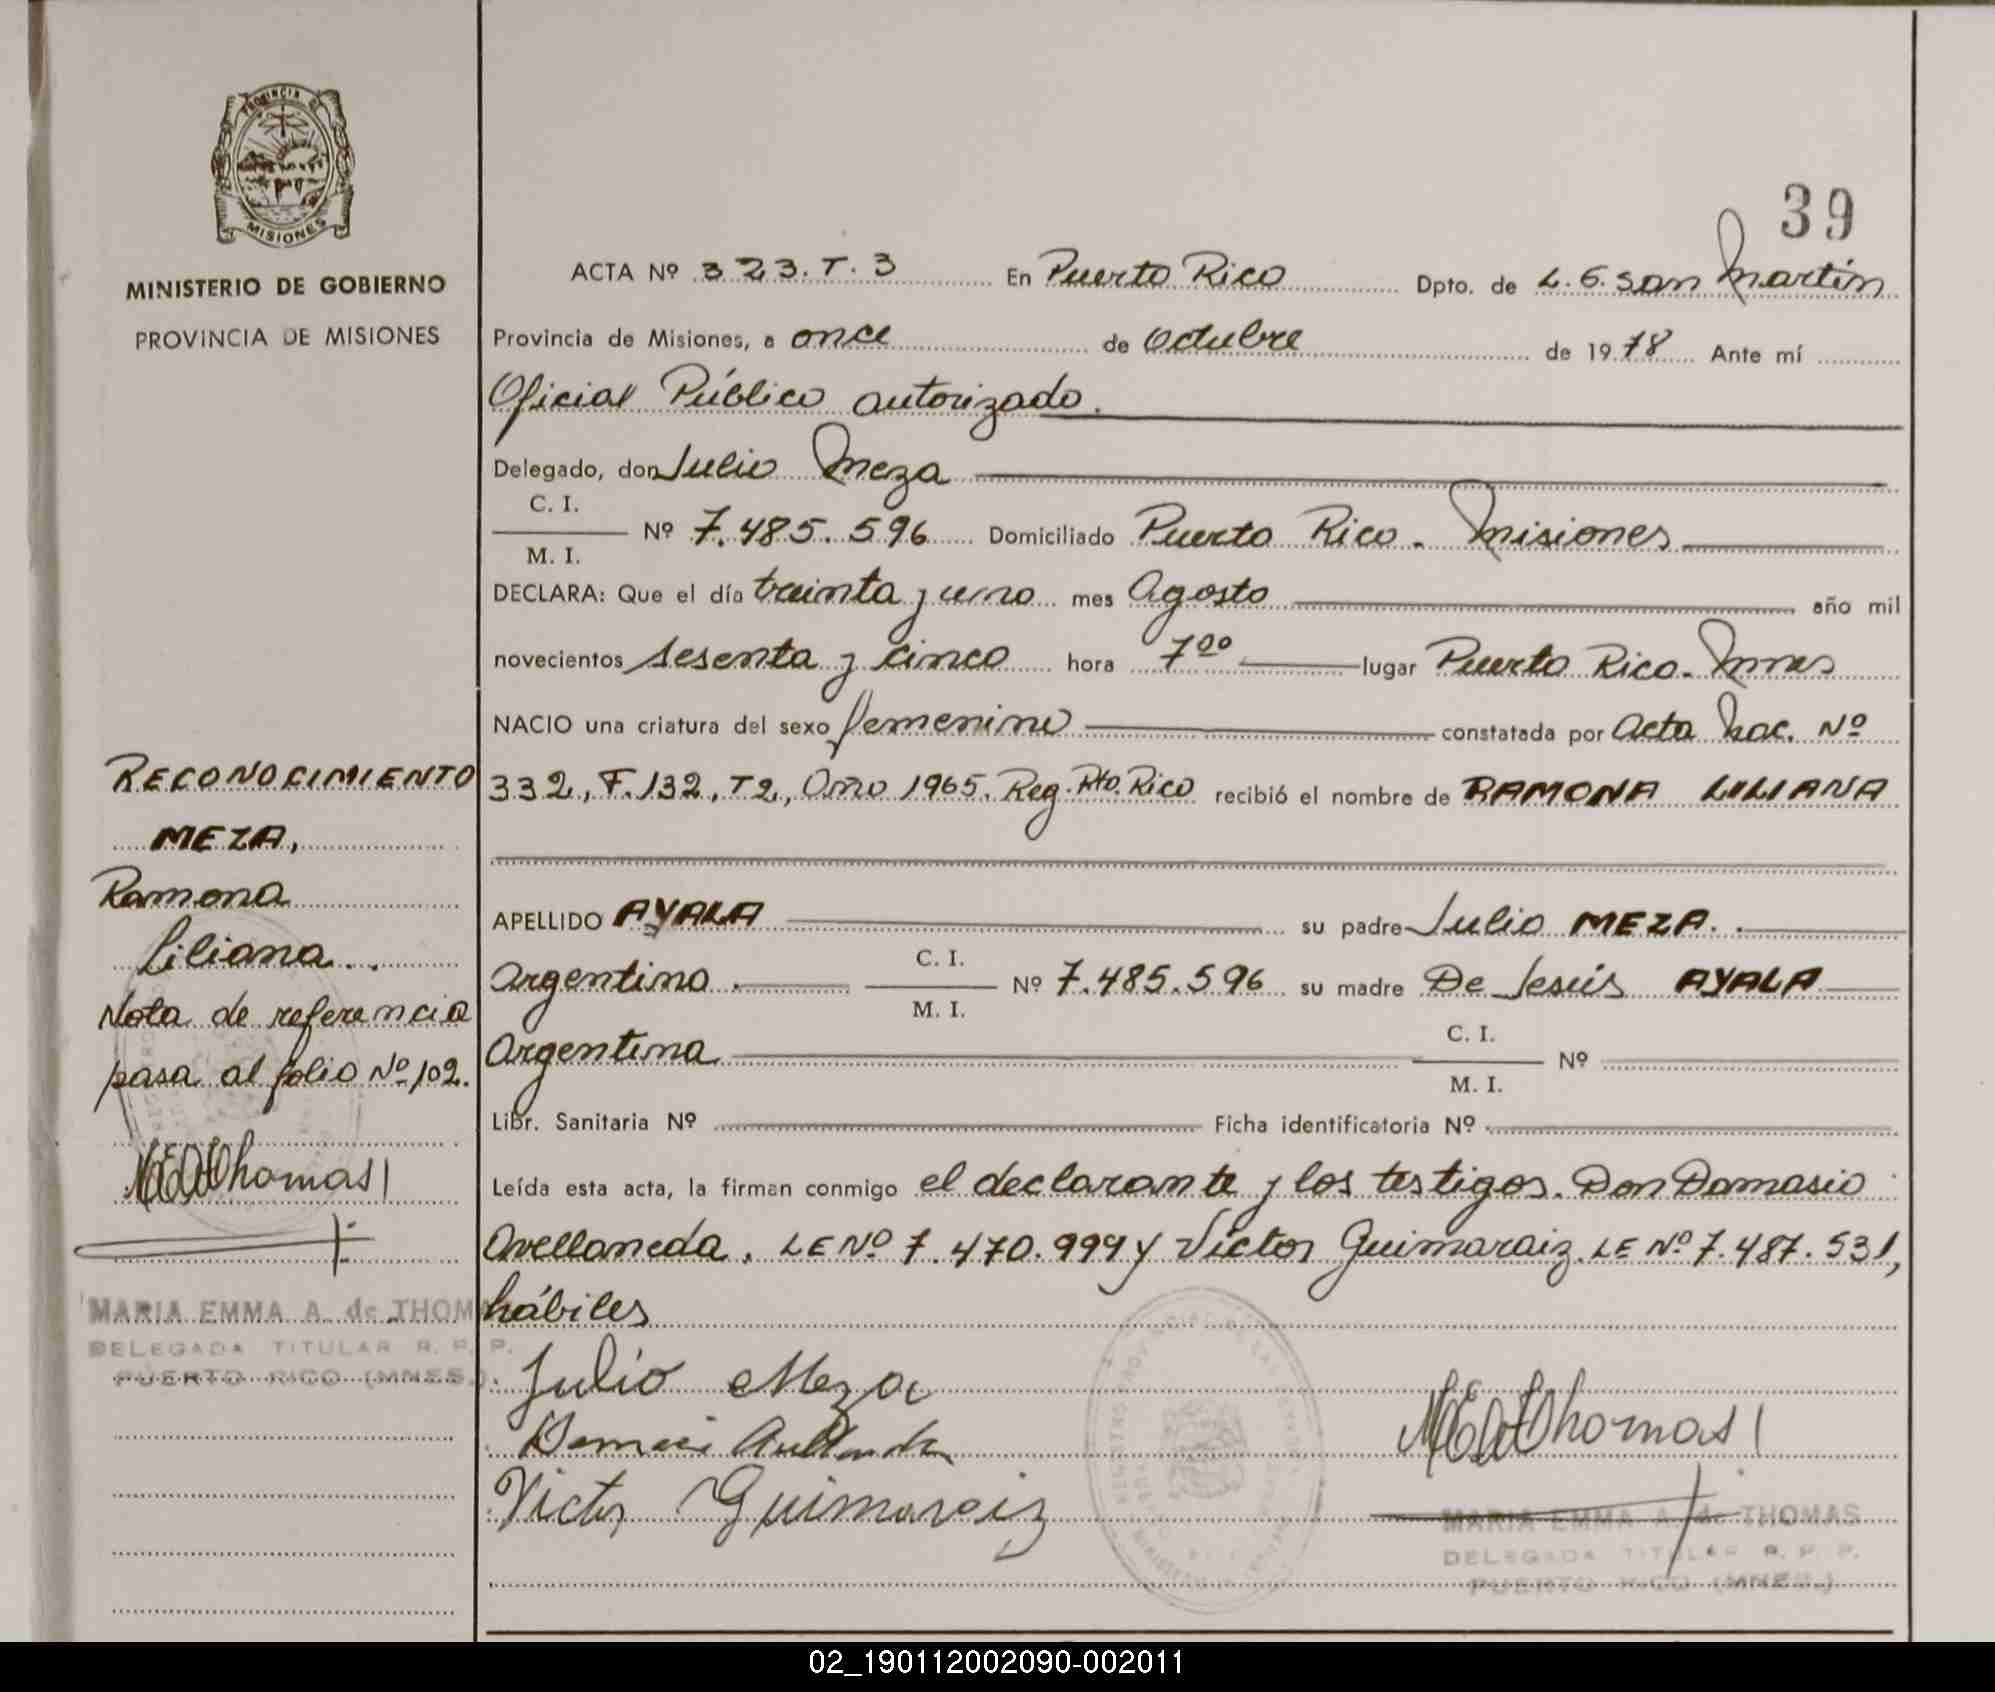 39
PROVINCIA DE
MISIONES
MINISTERIO DE GOBIERNO
PROVINCIA DE MISIONES
RECONOCIMIENTO
MEZA,
Ramona
Liliana..
Nota de referencia
pasa al folio Nº 102.
MEAdThomas
MARIA EMMA A. de THOM
DELEGADA TITULAR R. P. P.
PUERTO RICO (MNES.)
ACTA Nº 323.T.3 En Puerto Rico Dpto. de L.G. San Martín
Provincia de Misiones, a once de Octubre de 1978 Ante mí
Oficial Público autorizado.
Delegado, don Julio Meza
C. I.
Nº 7.485.596 Domiciliado Puerto Rico. Misiones
M. I.
DECLARA: Que el día treinta y uno mes Agosto año mil
novecientos sesenta y cinco hora 7.00 lugar Puerto Rico. Mnes
NACIO una criatura del sexo femenino constatada por Acta Nac. Nº
332, F.132, T2, Año 1965. Reg. Pto. Rico recibió el nombre de RAMONA LILIANA
APELLIDO AYALA su padre Julio MEZA.
Argentino. C. I. Nº 7.485.596 su madre De Jesús AYALA
M. I.
Argentina C. I. Nº
M. I.
Libr. Sanitaria Nº Ficha identificatoria Nº
Leída esta acta, la firman conmigo el declarante y los testigos. Don Damasio
Avellaneda. LE Nº 7.470.999 y Victor Guimaraiz. LE Nº 7.487.531,
hábiles
Julio Meza
Victor Guimaraiz
MEAdThomas
MARIA EMMA A. de THOMAS
DELEGADA TITULAR R. P. P.
PUERTO RICO (MNES.)
02_190112002090-002011